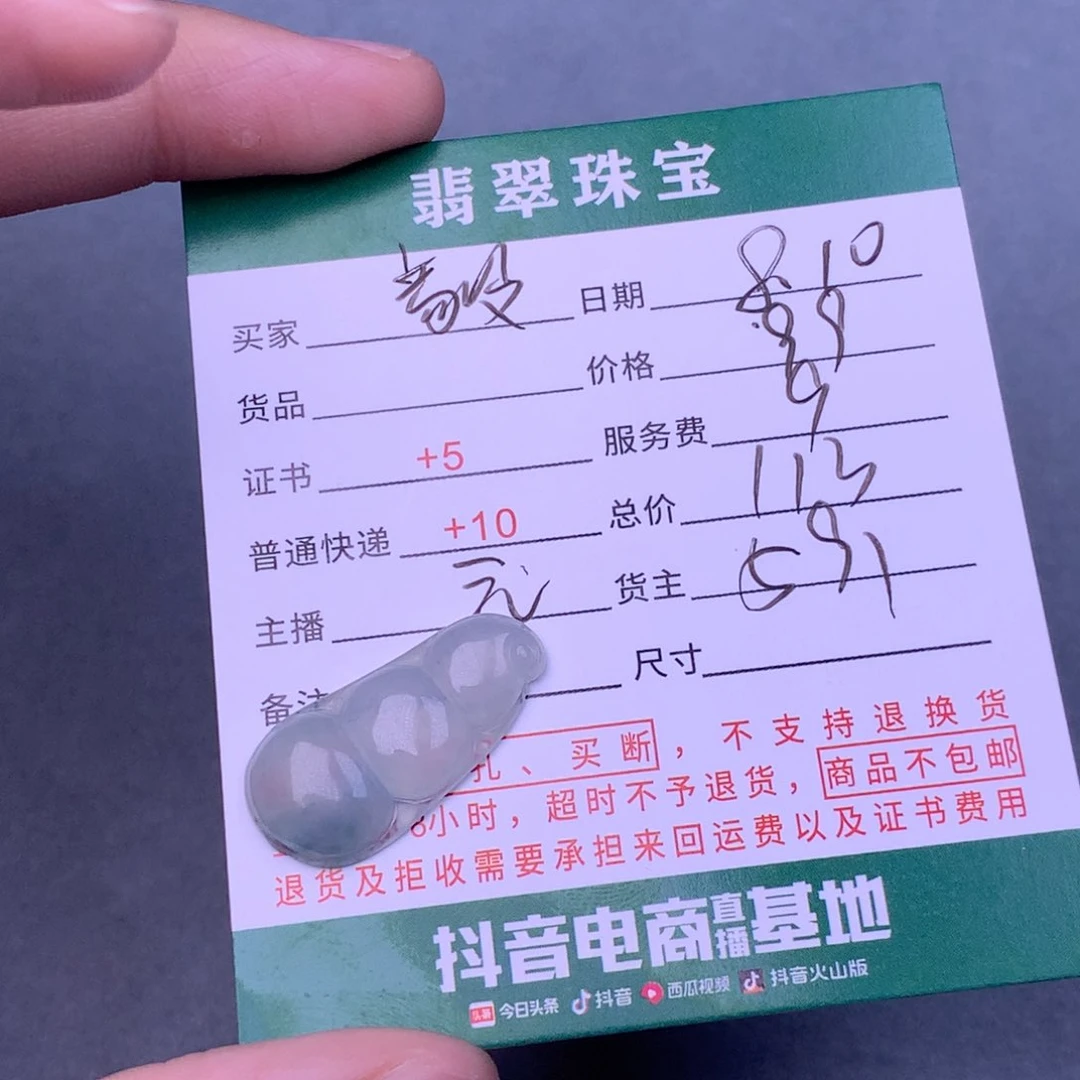 翡翠珠宝
买家 日期 8.10
货品 价格 89
证书 +5 服务费 9
普通快递 +10 总价 113
主播 元 货主 591
备注 尺寸
孔、买断，不支持退换货
8小时，超时不予退货，商品不包邮
退货及拒收需要承担来回运费以及证书费用
抖音电商直播基地
头条 今日头条 抖音 西瓜视频 抖音火山版